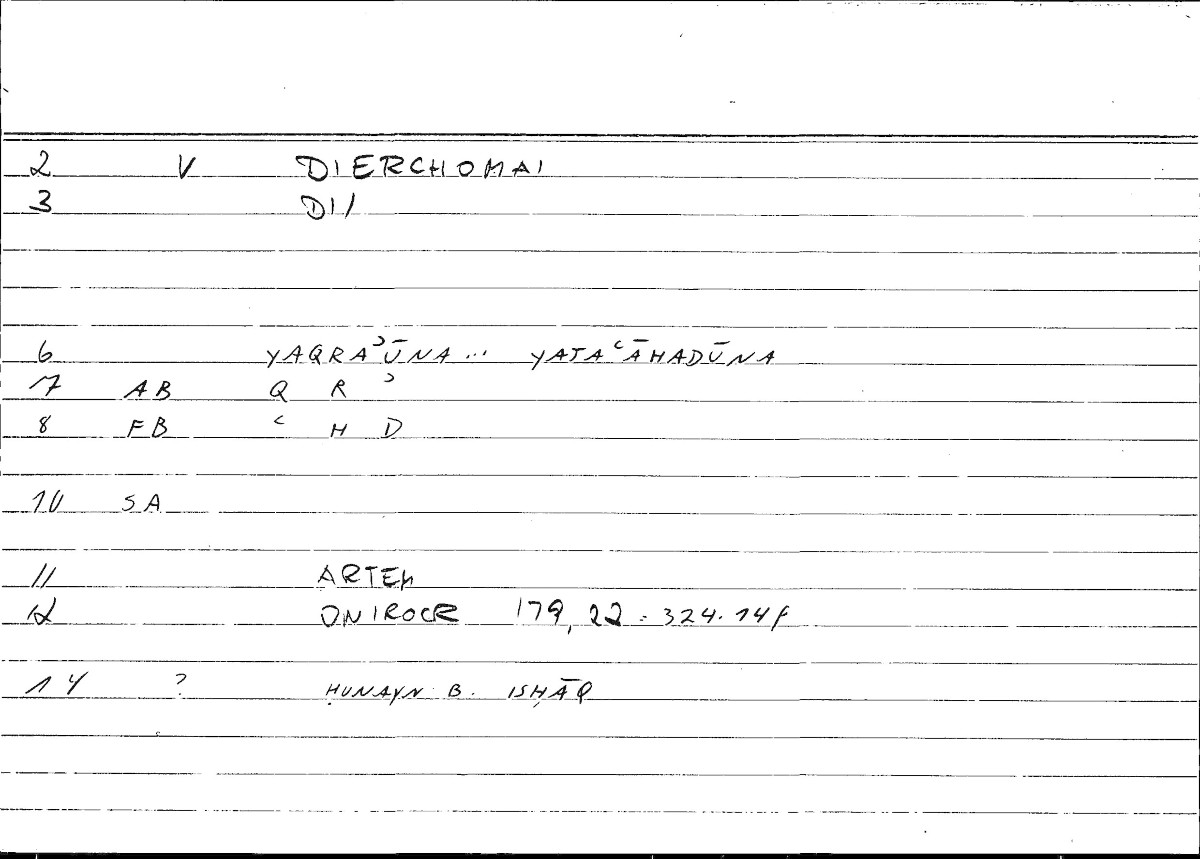 2 V DIERCHOMAI
3 DI/
6 YAQRAʾŪNA ... YATAʿĀHADŪNA
7 AB Q R ʾ
8 FB ʿ H D
10 SA
11 ARTEM
12 ONIROCR 179, 22 = 324.14f
14 ? ḤUNAYN B. ISḤĀQ